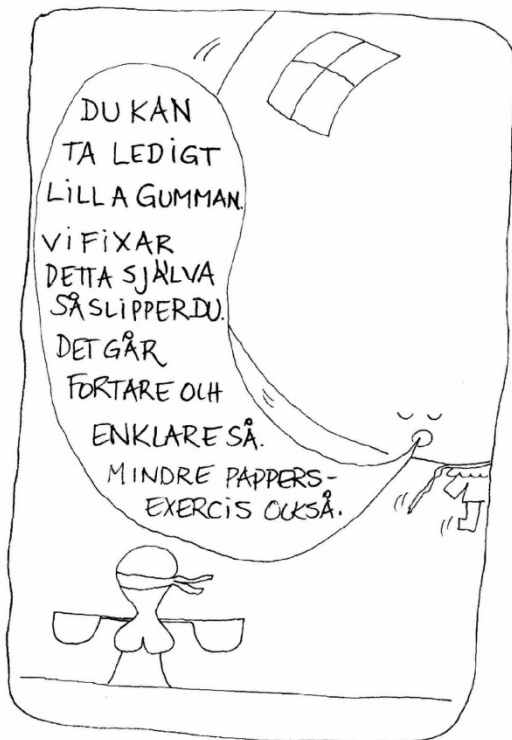 DU KAN
TA LEDIGT
LILLA GUMMAN.
VI FIXAR
DETTA SJÄLVA
SÅ SLIPPER DU.
DET GÅR
FORTARE OCH
ENKLARE SÅ.
MINDRE PAPPERS-
EXERCIS OCKSÅ.